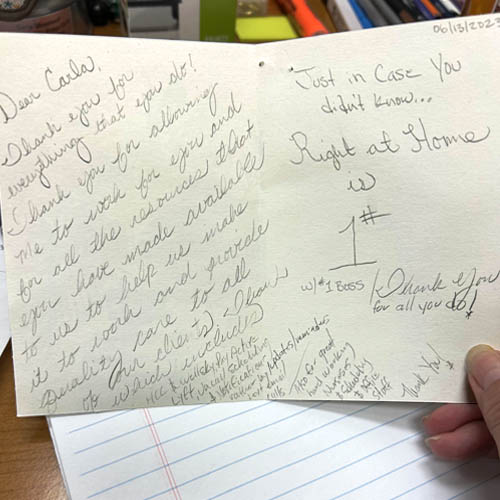 Dear Carla,
Thank you for
everything that you do!
Thank you for allowing
me to work for you and
for all the resources that
you have made available
to us to help us make
it to work and provide
quality care to all
of our clients. Thank
which includes
HCC & weekly Pay Activ
Lyft Uncall Scheduling
& Notification
calls
06/13/2023
Just in Case You
didn't know...
Right at Home
is
1#
w/#1 BOSS (Thank you
for all you do!)
for great
hard working
Nursing
& Scheduling
& Office
staff
Thank You!